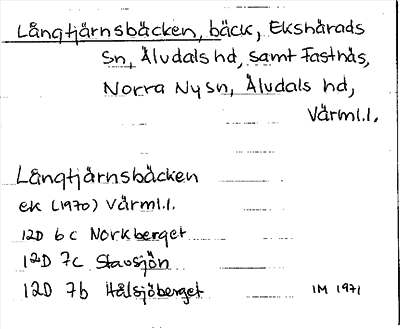 Långtjärnsbäcken, bäck, Ekshärads
Sn, Älvdals hd, samt Fastnäs,
Norra Ny Sn, Älvdals hd,
Värml.l.
Långtjärnsbäcken
ek (1970) Värml.l.
12D 6c Norkberget
12D 7c Stavsjön
12D 7b Hålsjöberget IM 1971